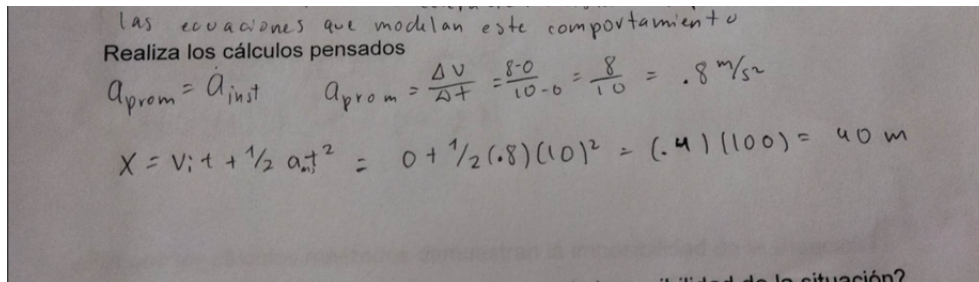 las ecuaciones que modelan este comportamiento
Realiza los cálculos pensados
a prom = a inst    a prom = ΔV/Δt = 8-0/10-0 = 8/10 = .8 m/s²
X = Vi t + 1/2 at² = 0 + 1/2 (.8)(10)² = (.4)(100) = 40 m
de la situación?